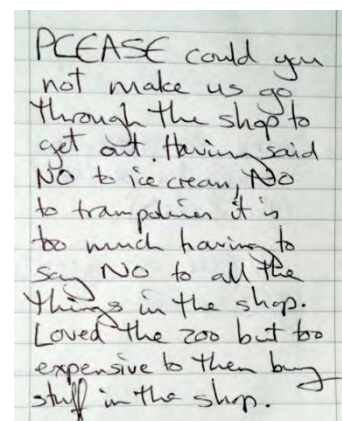 PLEASE could you
not make us go
through the shop to
get out. Having said
NO to ice cream, NO
to trampolines it is
too much having to
say NO to all the
things in the shop.
Loved the zoo but too
expensive to then buy
stuff in the shop.